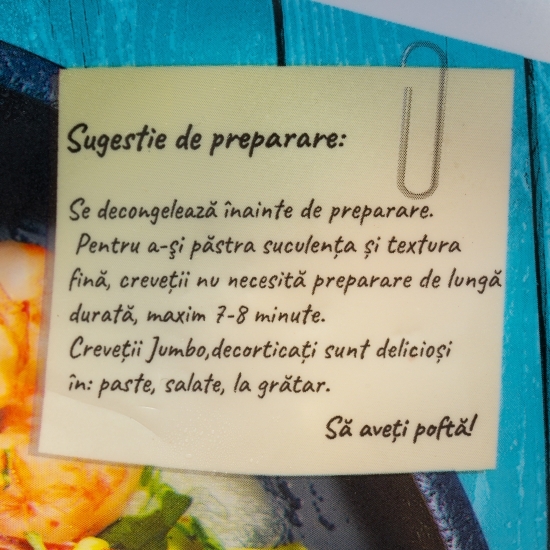 Sugestie de preparare:
Se decongelează înainte de preparare.
Pentru a-şi păstra suculența și textura
fină, creveții nu necesită preparare de lungă
durată, maxim 7-8 minute.
Creveții Jumbo,decorticați sunt delicioși
în: paste, salate, la grătar.
Să aveți poftă!